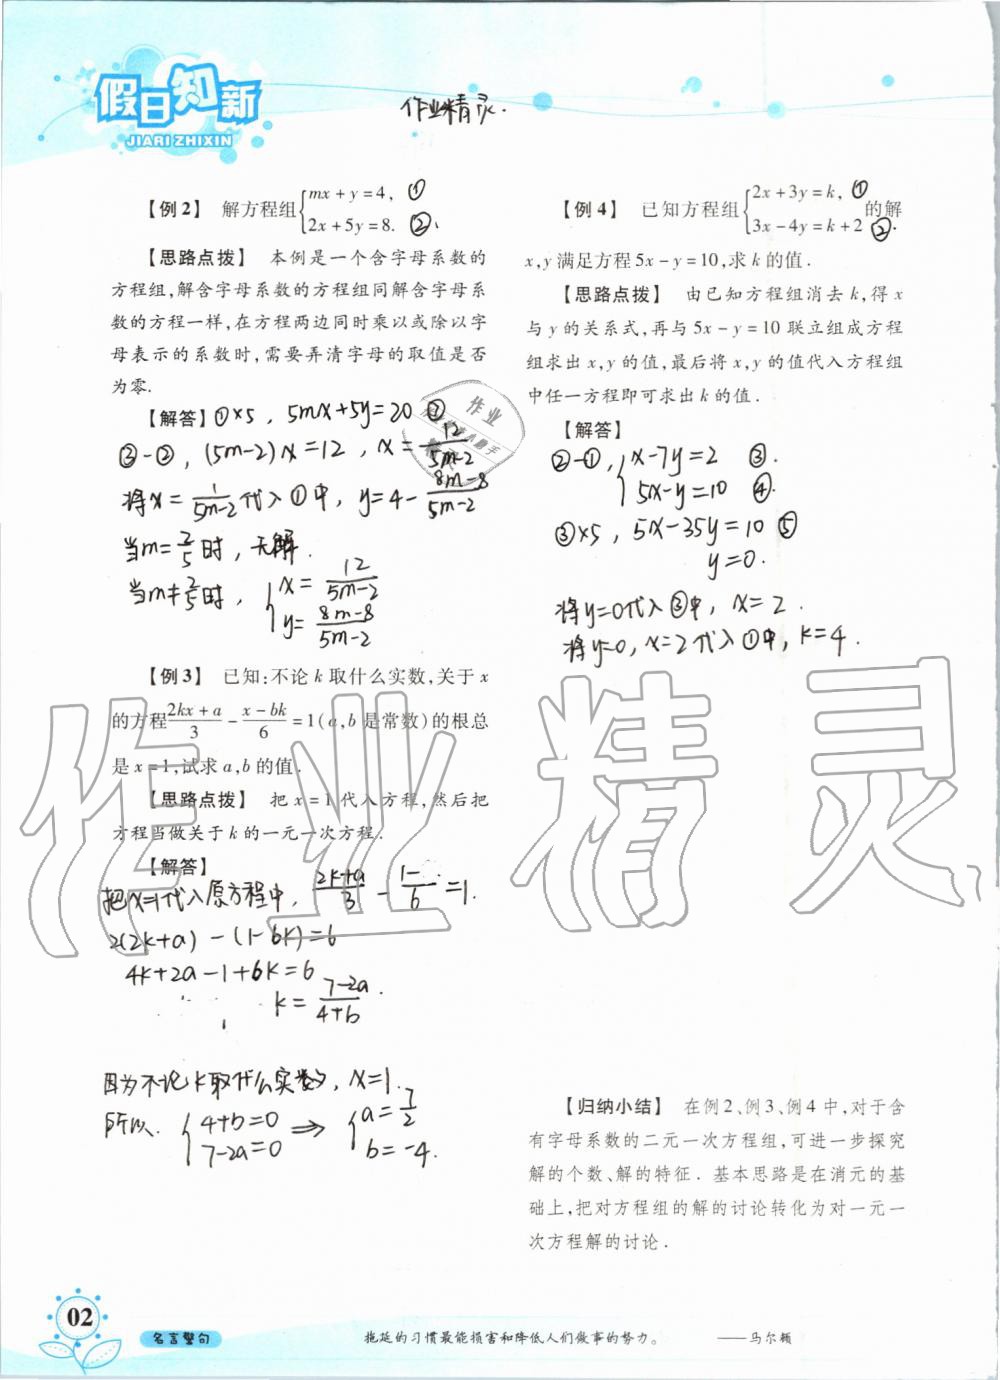 假日知新
JIARI ZHIXIN
作业精灵.
【例2】 解方程组{mx+y=4, ①
2x+5y=8. ②
【思路点拨】 本例是一个含字母系数的
方程组,解含字母系数的方程组同解含字母系
数的方程一样,在方程两边同时乘以或除以字
母表示的系数时,需要弄清字母的取值是否
为零.
【解答】①×5, 5mx+5y=20 ③
③-②, (5m-2)x=12, x=12/(5m-2)
将x=1/(5m-2)代入①中, y=4-(8m-8)/(5m-2)
当m=2/5时, 无解.
当m≠2/5时, {x=12/(5m-2)
y=(8m-8)/(5m-2)
【例3】 已知:不论k取什么实数,关于x
的方程(2kx+a)/3-(x-bk)/6=1(a,b是常数)的根总
是x=1,试求a,b的值.
【思路点拨】 把x=1代入方程,然后把
方程当做关于k的一元一次方程.
【解答】
把x=1代入原方程中, (2k+a)/3-(1-)/6=1.
2(2k+a)-(1-bk)=6
4k+2a-1+bk=6
k=(7-2a)/(4+b).
因为不论k取什么实数, x=1.
所以. {4+b=0
7-2a=0 ⇒ {a=7/2
b=-4.
【例4】 已知方程组{2x+3y=k, ①
3x-4y=k+2 ②的解
x,y满足方程5x-y=10,求k的值.
【思路点拨】 由已知方程组消去k,得x
与y的关系式,再与5x-y=10联立组成方程
组求出x,y的值,最后将x,y的值代入方程组
中任一方程即可求出k的值.
【解答】
②-①, {x-7y=2 ③.
5x-y=10 ④.
③×5, 5x-35y=10 ⑤
y=0.
将y=0代入③中, x=2.
将y=0, x=2代入①中, k=4.
【归纳小结】 在例2、例3、例4中,对于含
有字母系数的二元一次方程组,可进一步探究
解的个数、解的特征. 基本思路是在消元的基
础上,把对方程组的解的讨论转化为对一元一
次方程解的讨论.
作业精灵
02
名言警句
拖延的习惯最能损害和降低人们做事的努力。 ——马尔顿